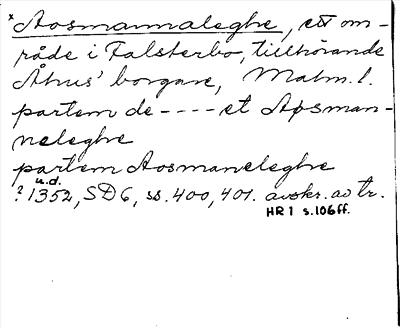 x Aosmannaleghe, ett om-
råde i Falsterbo, tillhörande
Åhus' borgare, Malm. l.
partem de ---- et Aosman-
neleghe
partem Aosmaneleghe
u.d.
? 1352, SD 6, ss. 400, 401. avskr. av tr.
HR 1 s. 106 ff.